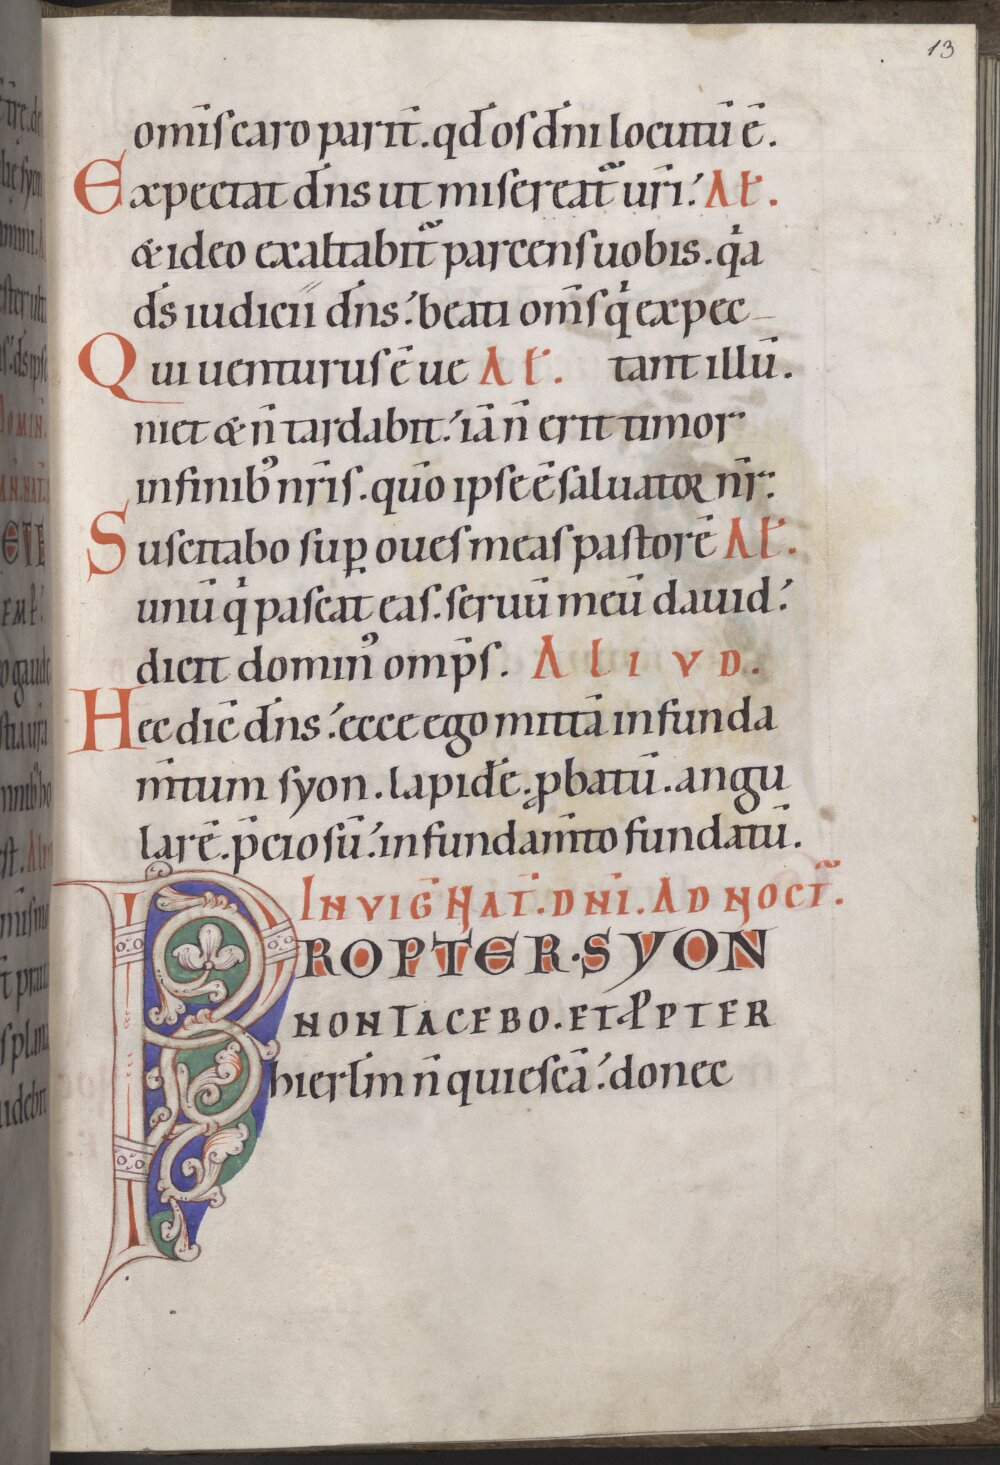 13
omīs caro parit̄. qd̄ os dn̄i locutū ē.
Expectat dn̄s ut misereat᷑ ur̄i. At̄.
& ideo exaltabit᷑ parcens uobis. qͥa
ds̄ iudicii dn̄s. beati oms̄ qͥ expec-
Qui uenturus ē ue At̄. tant illū.
niet & n̄ tardabit. iā n̄ erit timor
in finibꝰ nr̄is. qūo ipse ē saluator nr̄.
Suscitabo suꝑ oues meas pastorē At̄.
unū qͥ pascat eas. seruū meū dauid.
dicit dominꝰ omp̄s. ALIVD.
Hec dic̄ dn̄s. ecce ego mittā in funda
m̄tum syon. lapidē. ꝓbatū. angu
larē. p̄ciosū. in fundam̄to fundatū.
IN VIG̅ NAT̅. DN̅I. AD NOCT᷑.
PROPTER. SYON
NON TACEBO. ET ꝒPTER
hierl̄m n̄ quiescā. donec